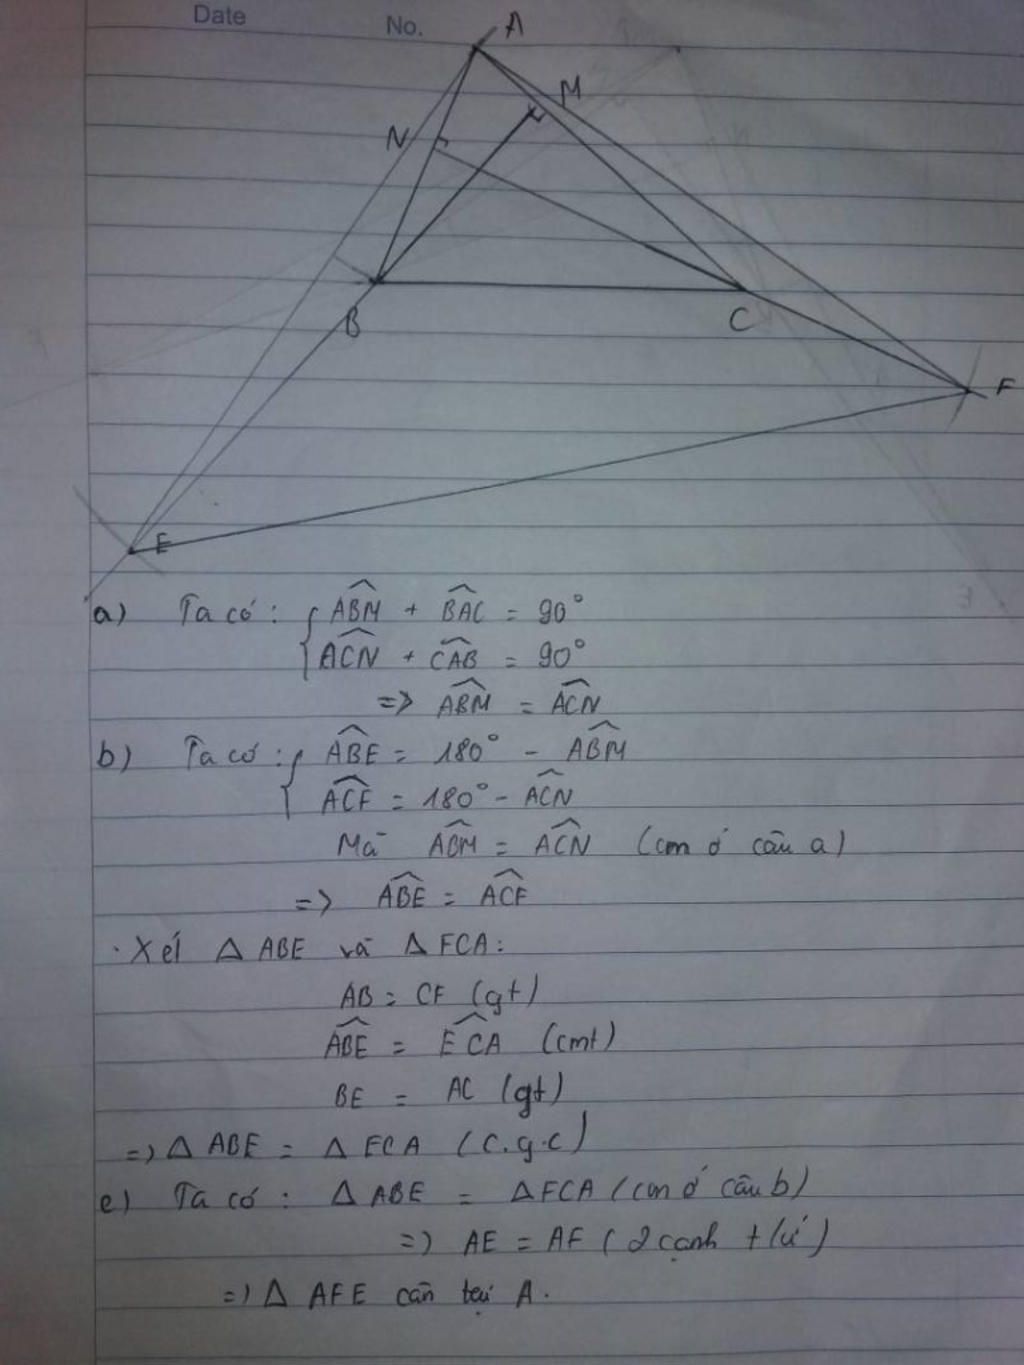 Date No.
A
M
N
B
C
F
E
a) Ta có: { ABM + BAC = 90°
ACN + CAB = 90°
=> ABM = ACN
b) Ta có: { ABE = 180° - ABM
ACF = 180° - ACN
Mà ABM = ACN (cm ở câu a)
=> ABE = ACF
. Xét Δ ABE và Δ FCA:
AB = CF (gt)
ABE = FCA (cmt)
BE = AC (gt)
=> Δ ABE = Δ FCA (c.g.c)
c) Ta có: Δ ABE = Δ FCA (cm ở câu b)
=> AE = AF (2 cạnh t/ứ)
=> Δ AFE cân tại A.